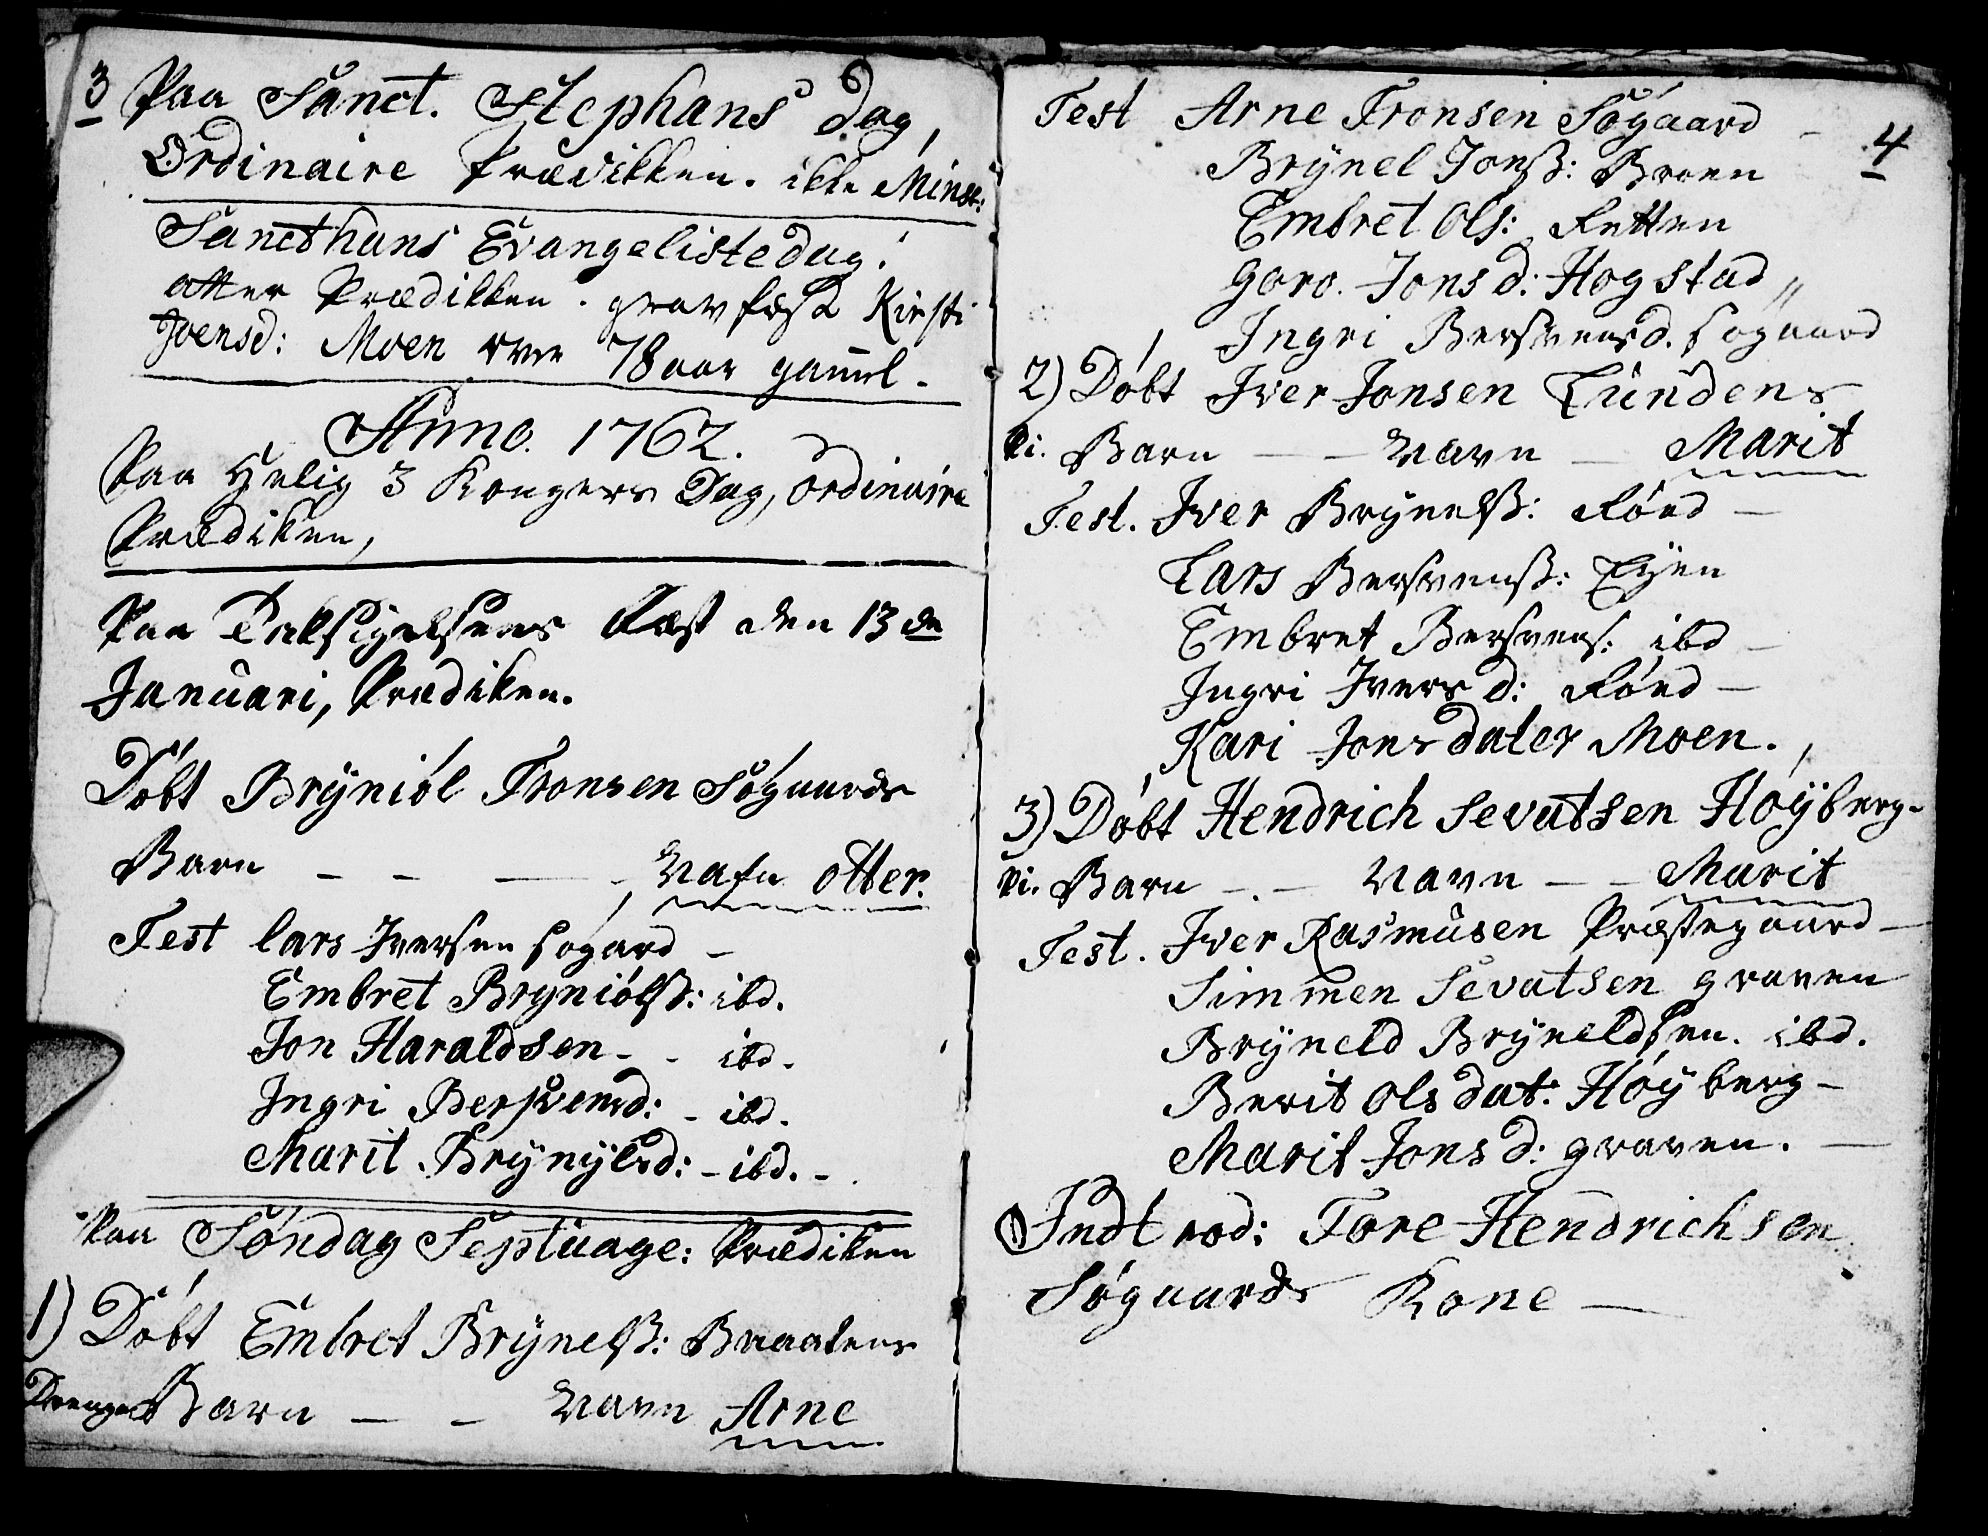 3 Paa Sanct. Stephans dag,
Ordinaire Prædikken. ikke Minst:
Sancthans Evangelistedag.
atter Prædikken. grav fæst Kirsti
Joensd: Moen 78 aar gamel.
Anno. 1762.
Paa Helig 3 Kongers Dag, ordinaire
Prædiken,
Paa Taksigelsens Fæst den 13 de
Januari, Prædiken.
Döbt Brÿniöl Tronsen Sögaards
Barn - - - - Nafn Otter.
Test Lars Iversen Sögard -
Embret Brÿniölß: ibd.
Jon Haraldsen - - ibd.
Ingri Bersvensd: - ibd.
Marit Brÿnÿlsd: - ibd. -
Paa Söndag Septuage: Prædiken
1) Döbt Embret Brÿnelß: Braatens
Drenge Barn - - Navn Arne
4
Test Arne Tronsen Sögaard -
Brÿnel Jonß: Broen
Embret Ols: Retten
Goro. Jonsd: Hogstad
Ingri Bersvensd. Sögaard
2) Döbt Iver Jonsen Lundens
Pi. Barn - - Navn - Marit
Test. Iver Brÿnelß: Röed -
Lars Bersvenß: Eÿen
Embret Bersvens: ibd -
Ingri Iversd: Röed -
Kari Jonsdater Moen.
3) Döbt Hendrich Sevatsen Höÿberg-
Pi. Barn - - Navn - - Marit
Test. Iver Rasmusen Præstegaard -
Simmen Sevatsen graven
Brÿneld Brÿneldsen. ibd.
Berit Olsdat: Höÿberg -
Marit Jonsd: graven. -
Indtrod: Tore Hendrichsen
Sögaards Kone -